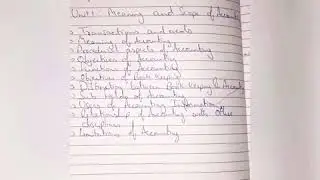 Unit 1: Meaning and Scope of Accounting
> Transactions and events
> Meaning of Accounting
> Procedural aspects of Accounting
> Objectives of Accounting
> Functions of Accounting
> Objectives of Book-Keeping
> Distinction between Book-Keeping & Accounting
> Sub-fields of Accounting
> Users of Accounting Information
> Relationship of Accounting with other
disciplines
> Limitations of Accounting